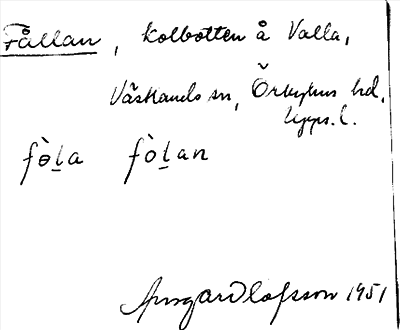 Fållan, kolbotten å Valla,
Västlands sn, Örbyhus hd,
Upps. l.
fò̱la fò̱lan
Olofsson 1951